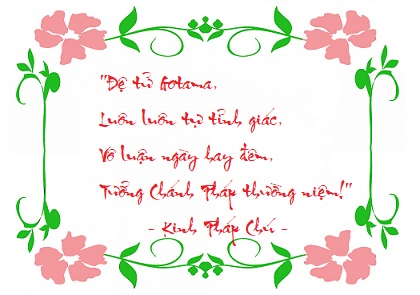 "Đệ tử Gotama,
Luôn luôn tự tỉnh giác,
Vô luận ngày hay đêm,
Tưởng Chánh Pháp thường niệm!"
- Kinh Pháp Chú -